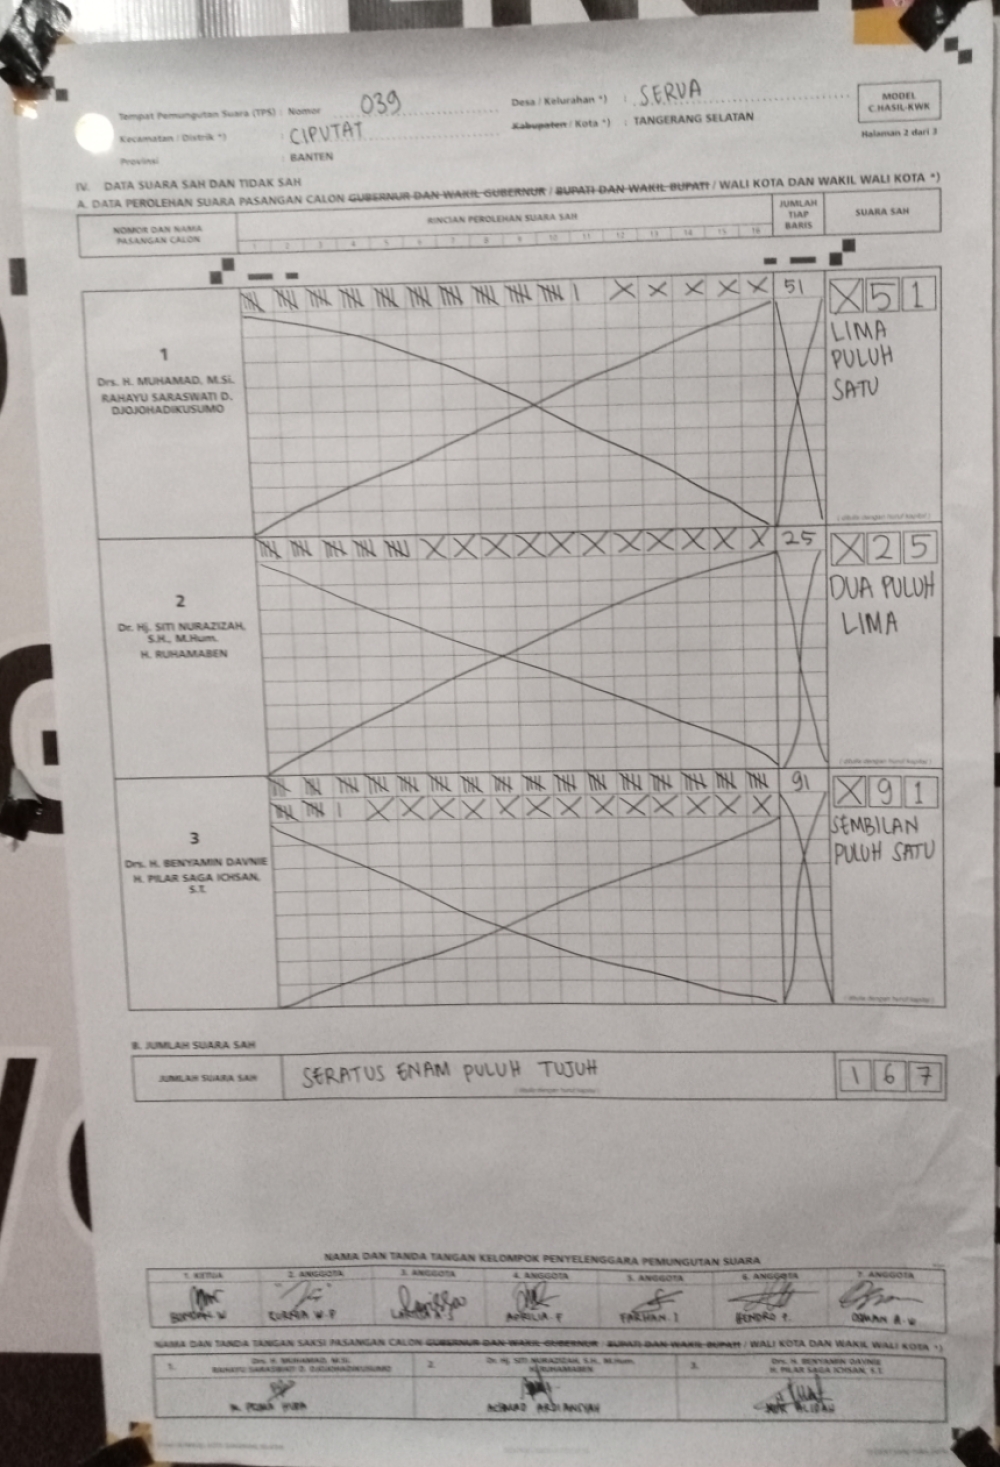 Tempat Pemungutan Suara (TPS) : Nomor 039
Desa / Kelurahan *) : SERUA
MODEL
C.HASIL-KWK
Kecamatan / Distrik *) : CIPUTAT
Kabupaten / Kota *) : TANGERANG SELATAN
Halaman 2 dari 3
Provinsi : BANTEN
IV. DATA SUARA SAH DAN TIDAK SAH
A. DATA PEROLEHAN SUARA PASANGAN CALON GUBERNUR DAN WAKIL GUBERNUR / BUPATI DAN WAKIL BUPATI / WALI KOTA DAN WAKIL WALI KOTA *)
NOMOR DAN NAMA
PASANGAN CALON
RINCIAN PEROLEHAN SUARA SAH
1 2 3 4 5 6 7 8 9 10 11 12 13 14 15 16
JUMLAH
TIAP
BARIS
SUARA SAH
1
Drs. H. MUHAMAD, M.Si.
RAHAYU SARASWATI D.
DJOJOHADIKUSUMO
51
X 5 1
LIMA
PULUH
SATU
(ditulis dengan huruf kapital)
2
Dr. Hj. SITI NURAZIZAH,
S.H., M.Hum.
H. RUHAMABEN
25
X 2 5
DUA PULUH
LIMA
(ditulis dengan huruf kapital)
3
Drs. H. BENYAMIN DAVNIE
H. PILAR SAGA ICHSAN,
S.T.
91
X 9 1
SEMBILAN
PULUH SATU
(ditulis dengan huruf kapital)
B. JUMLAH SUARA SAH
JUMLAH SUARA SAH
SERATUS ENAM PULUH TUJUH
(ditulis dengan huruf kapital)
1 6 7
NAMA DAN TANDA TANGAN KELOMPOK PENYELENGGARA PEMUNGUTAN SUARA
1. KETUA
2. ANGGOTA
3. ANGGOTA
4. ANGGOTA
5. ANGGOTA
6. ANGGOTA
7. ANGGOTA
AURILIA F
FARHAN. I
HENDRO P.
OSMAN A. W
NAMA DAN TANDA TANGAN SAKSI PASANGAN CALON GUBERNUR DAN WAKIL GUBERNUR / BUPATI DAN WAKIL BUPATI / WALI KOTA DAN WAKIL WALI KOTA *)
1. Drs. H. MUHAMAD, M.Si.
RAHAYU SARASWATI D. DJOJOHADIKUSUMO
2. Dr. Hj. SITI NURAZIZAH, S.H., M.Hum.
H. RUHAMABEN
3. Drs. H. BENYAMIN DAVNIE
H. PILAR SAGA ICHSAN, S.T.
ACHMAD ARDIANSYAH